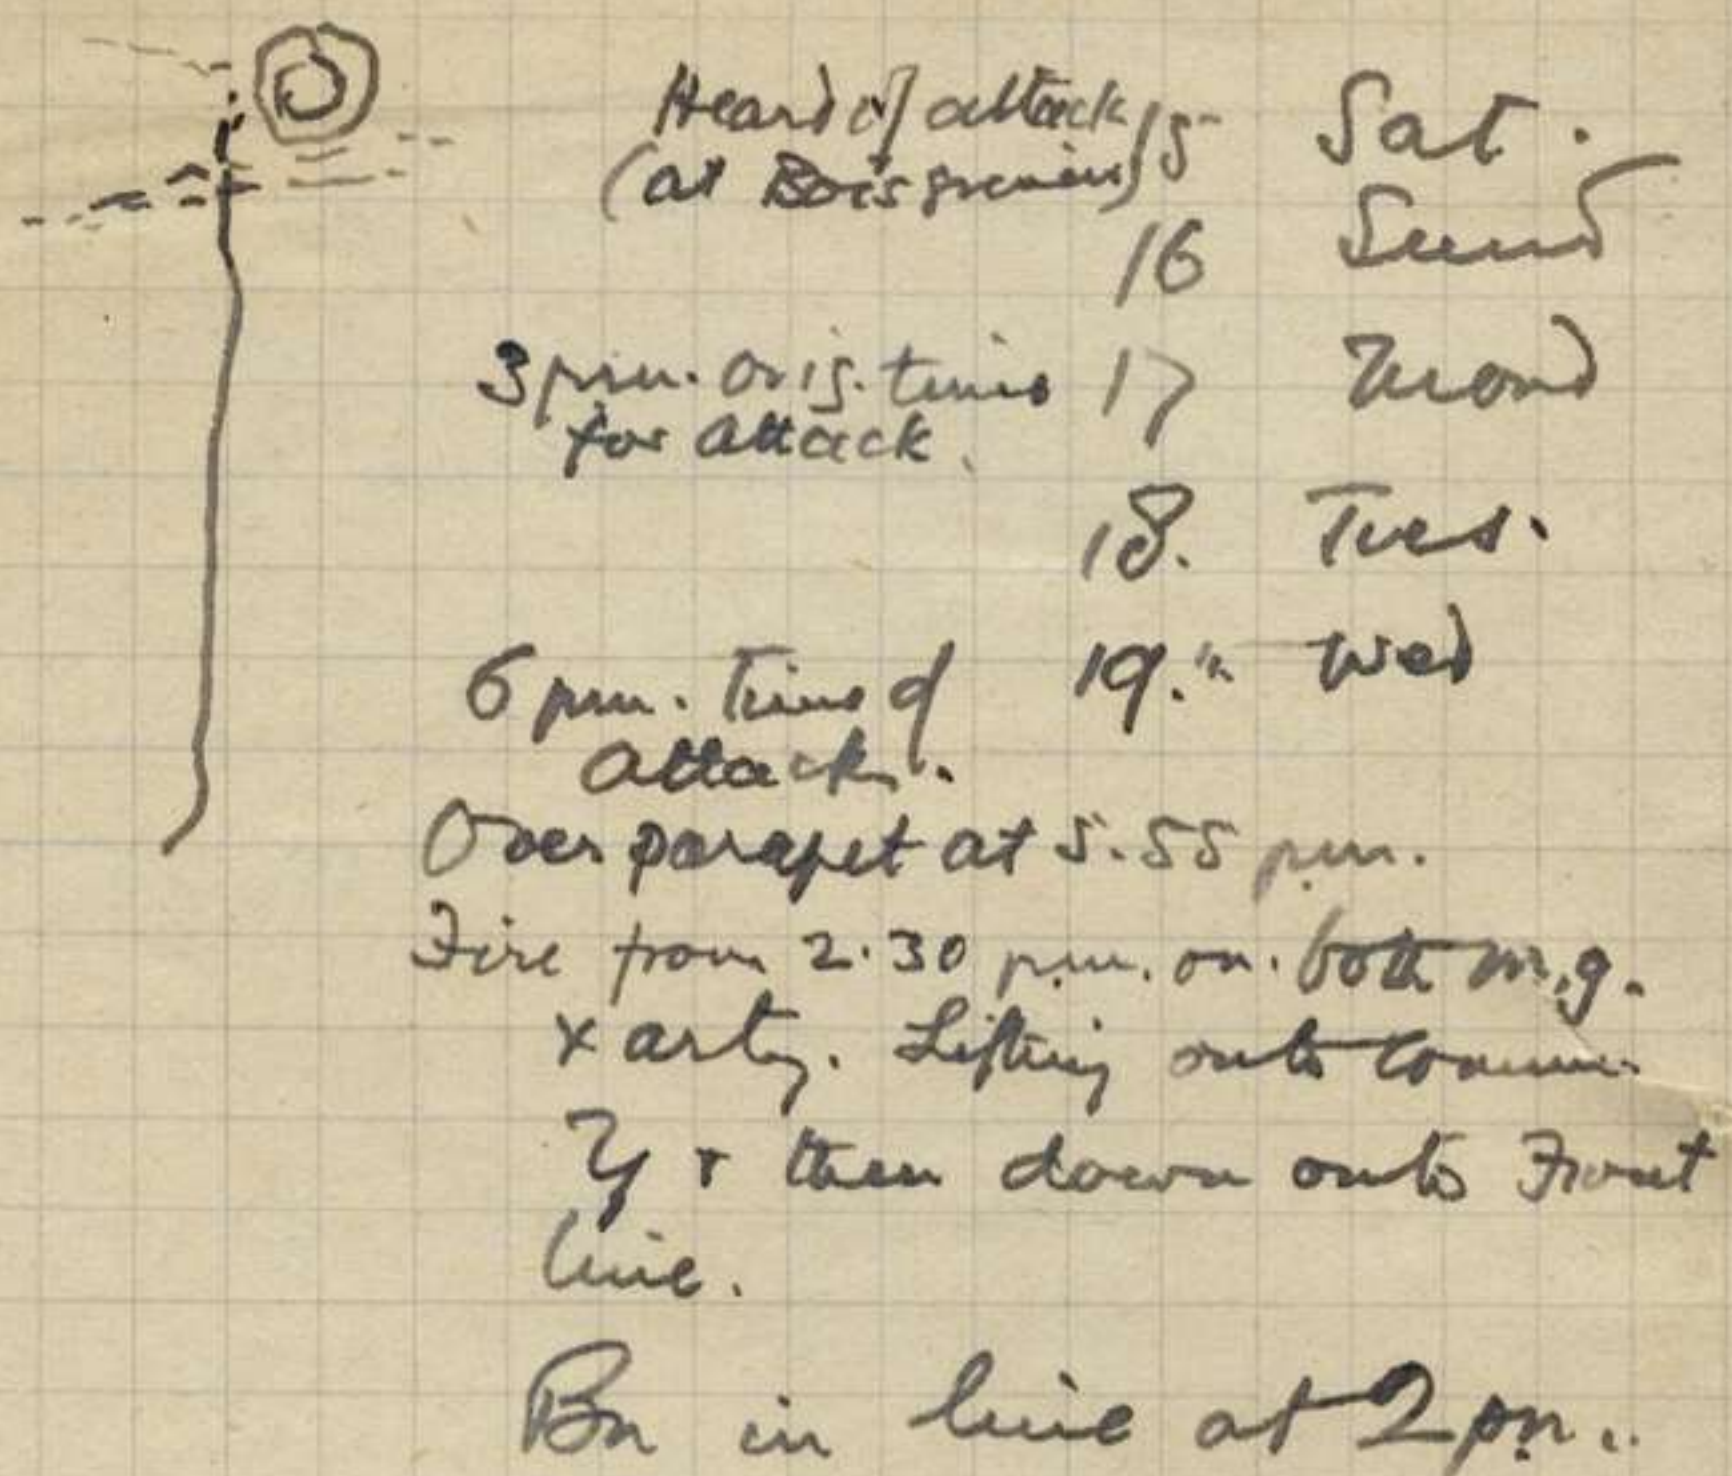 Heard of attack 15 Sat.
(at Bois Grenier)
16 Sund
3 p.m. orig. time 17 Mond
for attack.
18. Tues.
6 p.m. Time of 19.th Wed
attack.
Over parapet at 5.55 p.m.
Fire from 2.30 p.m. on. both m.g.
& arty. Lifting onto comm.
T & then down onto Front
line.
Bn in line at 2 pm.